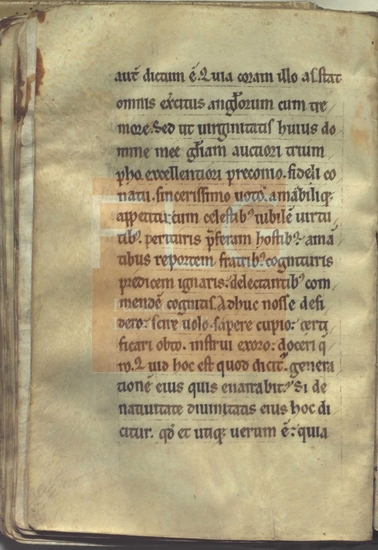 aut̄ dictum ē. Quia coram illo assτat
omnis exc̄itus angl̄orum cum tre
more. Sed ut uirginitatis huius do
mine mee gl̄iam auctiori trium
pho. excellentiori preconio. fideli co
natu. sincerissimo uoto. amabiliq;
appetitu: cum celestib; iubilē uirtu
tib; perituris p̄feram hostib; amā
tibus reportem fratrib; cognituris
predicem ignaris: delectantib; com
mendē cognitis. Adhuc nosse desi
dero: scire uolo. sapere cupio: certi
ficari obto. instrui exoro: doceri q̄
ro. Quid hoc est quod dicit̄. genera
tionē eius quis enarrabit? Si de
natiuitate diuinitatis eius hoc di
citur. qđ et utiq; uerum ē: quia